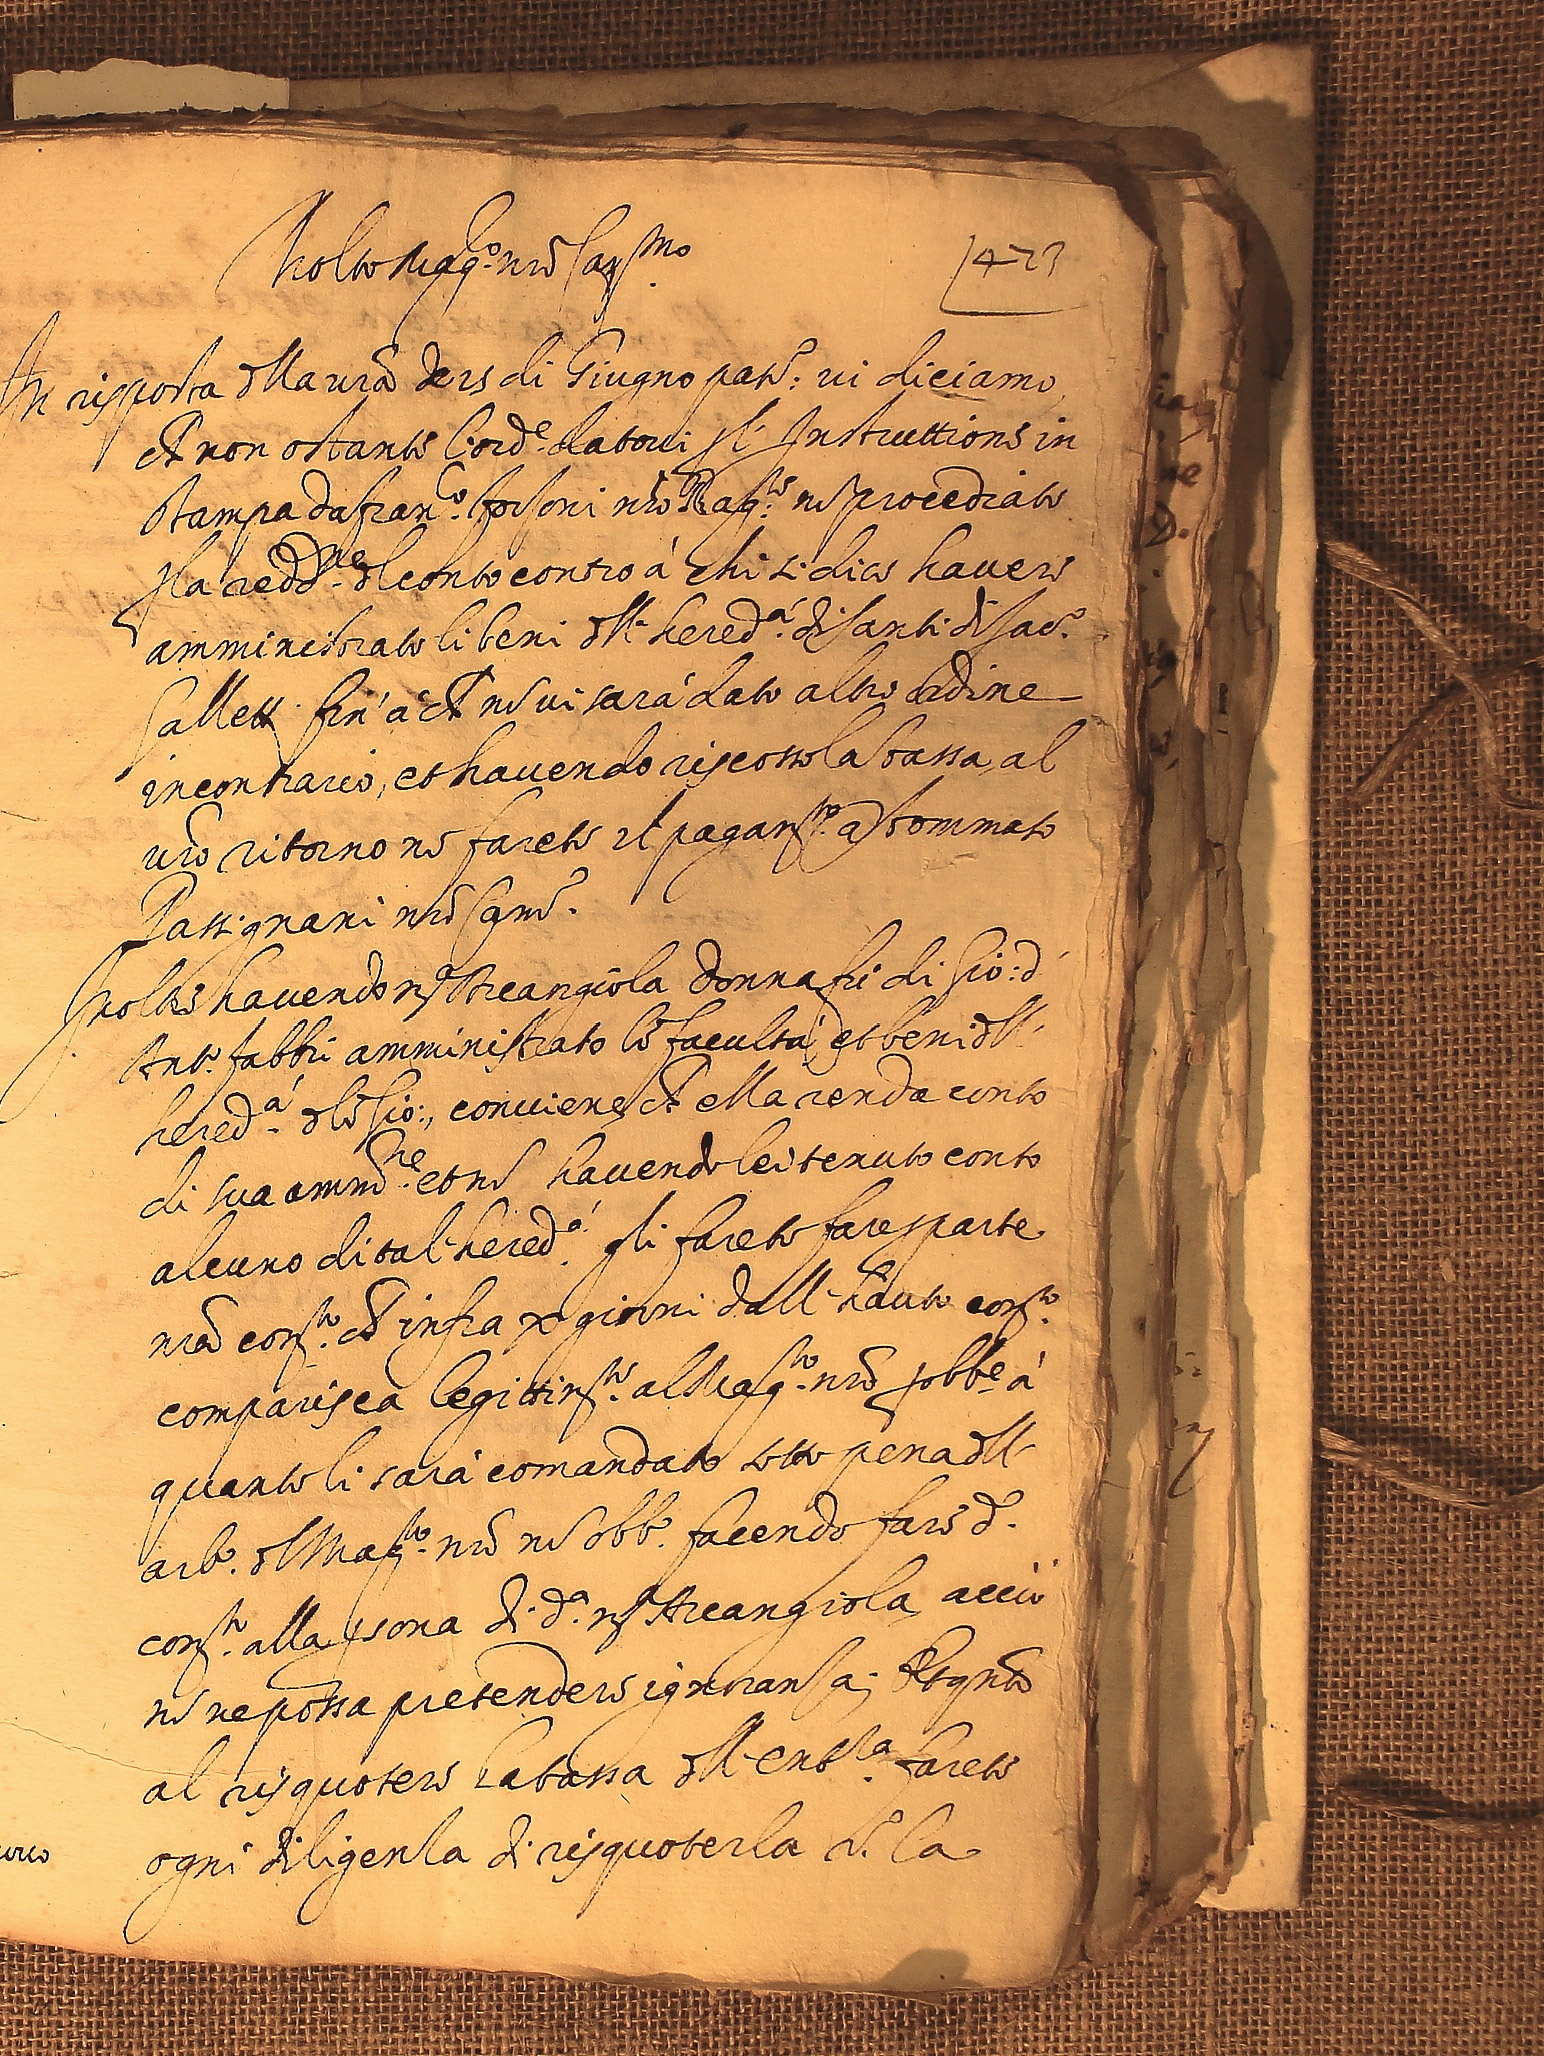 Molto Mag.co nro Car.mo
423
In risposta della vra de 15 di Giugno pat.o: vi diciamo
che non ostante l'ord.e datovi p l' Instruttione in
stampa da fran.co nro Mag.to no procediate
p la redd.ne del conto contro à chi si dice havere
amministrato li beni dell' hered.à di Santi di Jac.o
Galletti fin' à che no vi sarà dato altro ordine
in contrario, et havendo riscosso la tassa, al
vro ritorno ne farete il pagam.to a Tommaso
Passignani nro Cam.o.
Inoltre havendo m.a Arcangiola donna fù di Gio: d'
Ant.o fabbri amministrato le facultà, et beni dell'
hered.à di do Gio:, conviene che ella renda conto
di sua amm.ne et no havendo lei tenuto conto
alcuno di tal' hered.à gli farete fare p parte
nra com.to che infra x giorni dall' hauto com.to
comparisca legittim.te al Mag.to nro p obb.e à
quanto li sarà comandato sotto pena dell'
arb.o del Mag.to nro no obb.o facendo fare d.o
com.to alla psona di d.a m.a Arcangiola, acciò
no ne possa pretendere ignoranza; Et qnto
al risquotere la tassa dell' ent.ta farete
ogni diligenza di risquoterla la